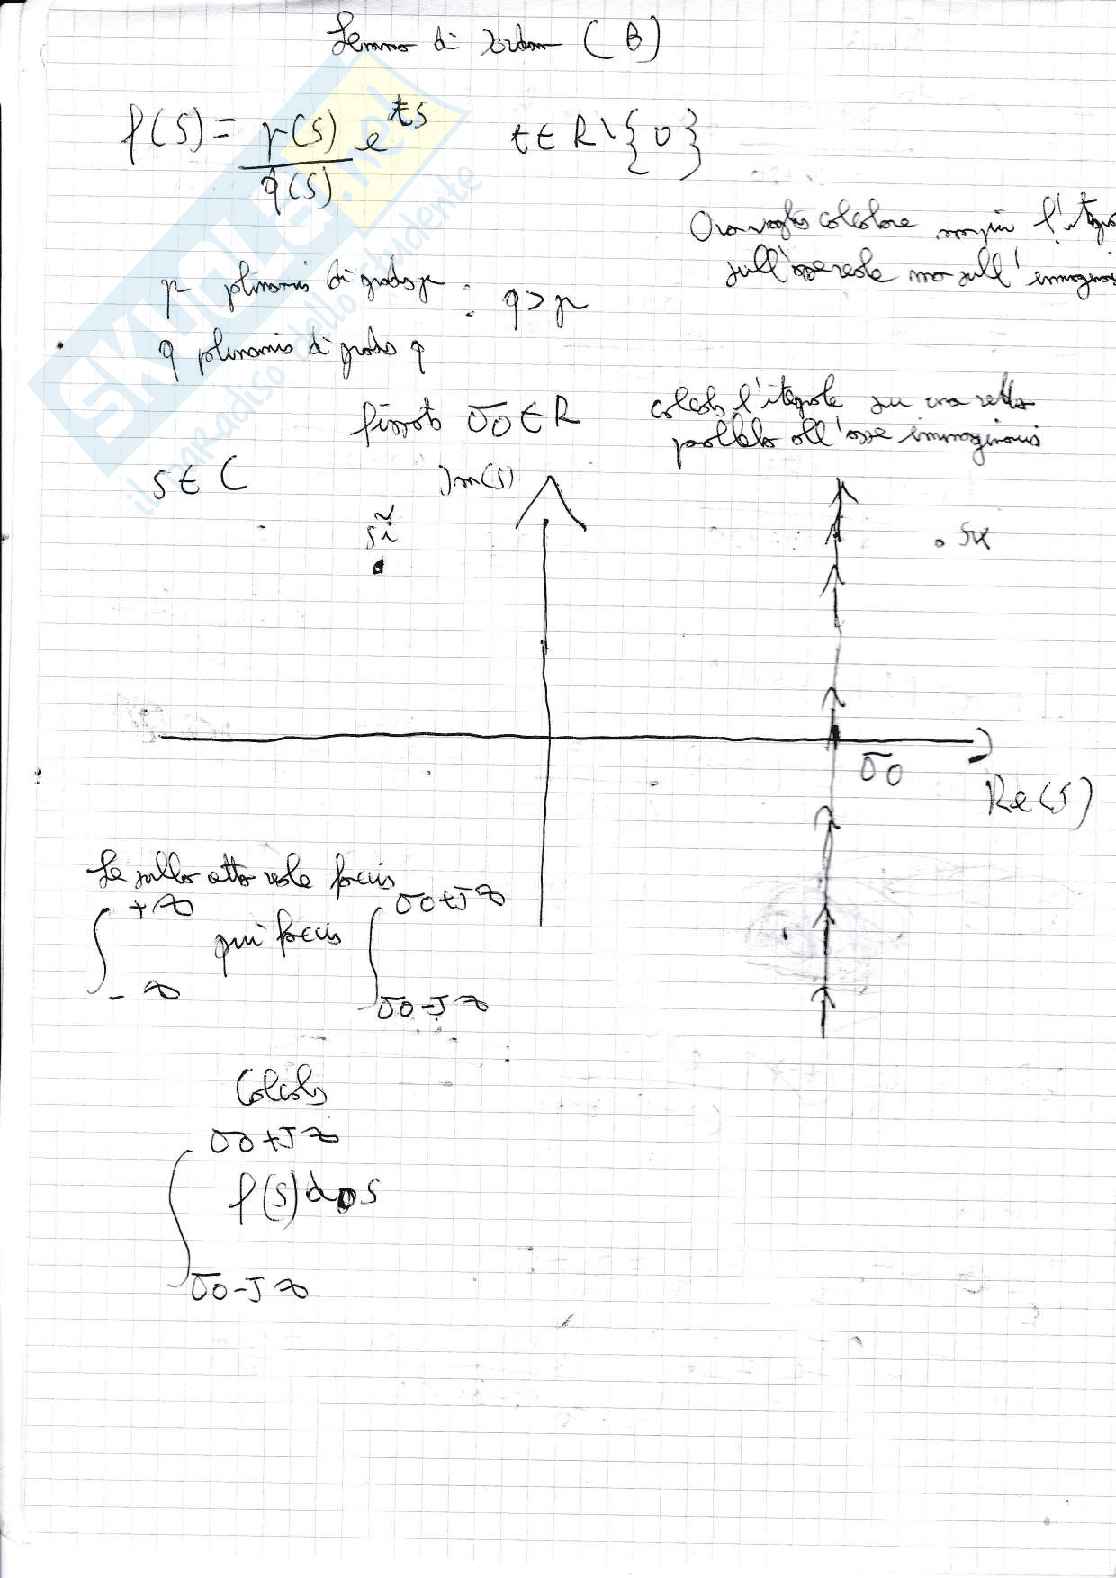 Lemma di Jordan (B)
f(s) = p(s)/q(s) e^ts t ∈ R \ {0}
Ora voglio calcolare non più l'integra
sull'asse reale ma sull'immaginar
p polinomio di grado p : q > p
q polinomio di grado q
fissato σ0 ∈ R calcolo l'integrale su una retta
parallela all'asse immaginario
s ∈ C Im(s)
s̃i
sk
σ0
Re(s)
Se sull'asse reale faccio
∫ +∞ -∞ qui faccio ∫ σ0+J∞ σ0-J∞
Calcolo
∫ σ0+J∞ σ0-J∞ f(s)ds
SKUOLA.net
il paradiso dello studente